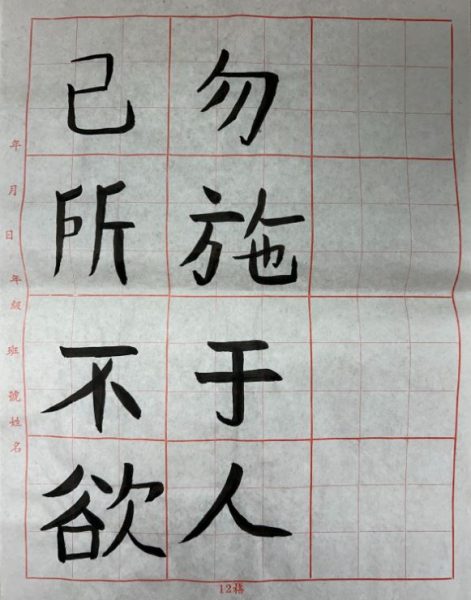 己所不欲
勿施于人
年月日 年級 班 號姓名
12格